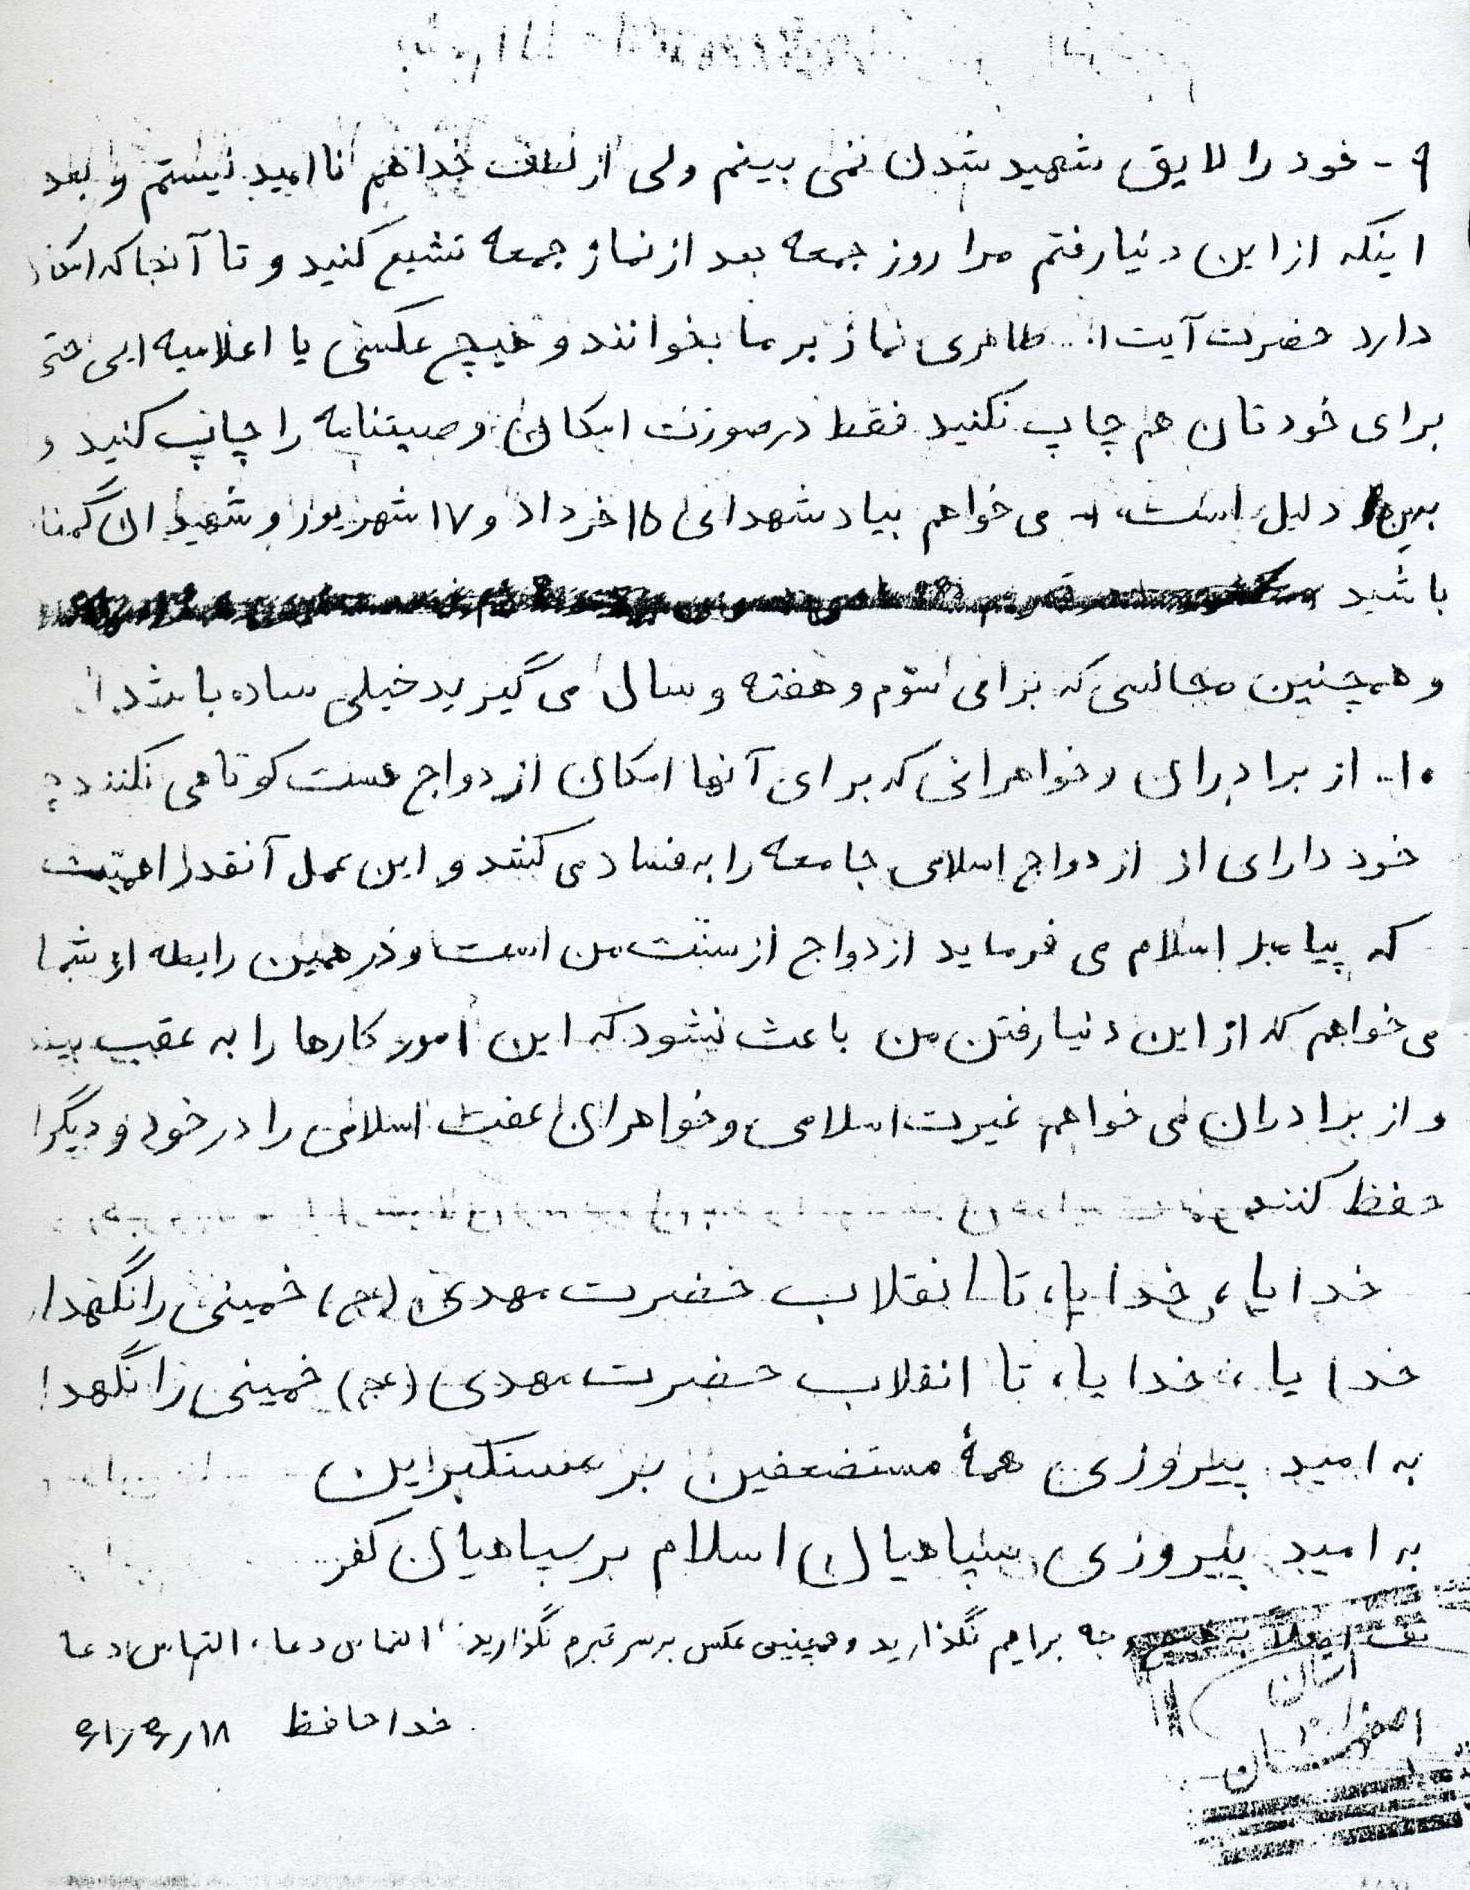 ۹- خود را لایق شهید شدن نمی بینم ولی از لطف خدا هم ناامید نیستم و بعد
اینکه از این دنیا رفتم مرا روز جمعه بعد از نماز جمعه تشیع کنید و تا آنجا که
دارد حضرت آیت ا... طاهری نماز بر ما بخوانند و هیچ عکسی یا اعلامیه ایی حتی
برای خودتان هم چاپ نکنید فقط در صورت امکان وصیتنامه را چاپ کنید و
بدین دلیل است، می خواهم بیاد شهدای ۱۵ خرداد و ۱۷ شهریور و شهیدان گمنا
باشید
و همچنین مجالسی که برای سوم و هفته و سال می گیرید خیلی ساده باشد.
۱۰- از برادران و خواهرانی که برای آنها امکان ازدواج هست کوتاهی نکنند
خود دارای از ازدواج اسلامی جامعه را به فساد می کشد و این عمل آنقدر اهمیت
که پیامبر اسلام می فرماید ازدواج از سنت من است و در همین رابطه از شما
می خواهم که از این دنیا رفتن من باعث نشود که این امور کارها را به عقب
و از برادران می خواهم غیرت اسلامی و خواهران عفت اسلامی را در خود و دیگرا
حفظ کنند
خدایا، خدایا، تا انقلاب حضرت مهدی (عج) خمینی را نگهدا
خدایا، خدایا، تا انقلاب حضرت مهدی (عج) خمینی را نگهدا
به امید پیروزی همهٔ مستضعفین بر مستکبراین
به امید پیروزی سپاهیان اسلام بر سپاهیان کفر
وجه برایم نگذارید و همچنین عکس بر سر قبرم نگذارید. التماس دعا، التماس دعا
خدا حافظ ۶۱/۶/۱۸
استان
اصفهان